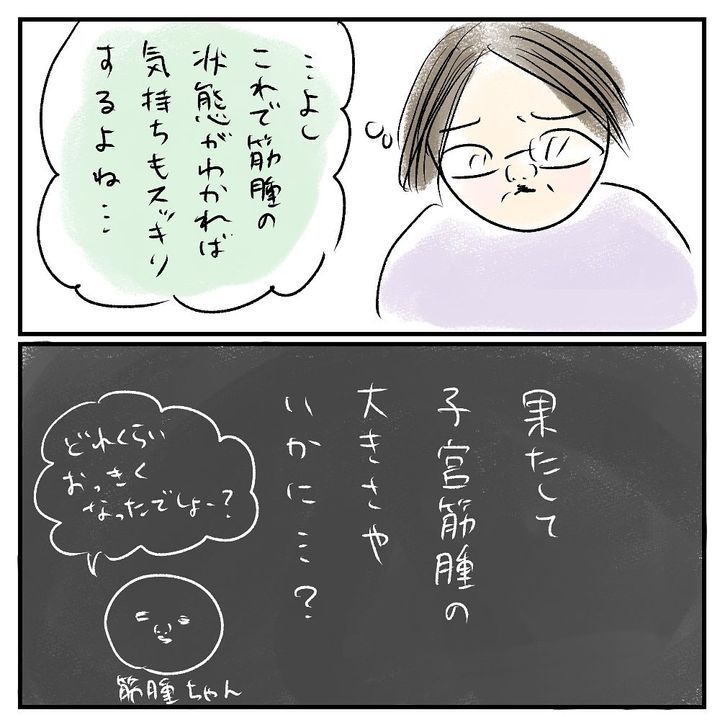 …よし
これで筋腫の
状態がわかれば
気持ちもスッキリ
するよね…
果たして
子宮筋腫の
大きさや
いかに…?
どれくらい
おっきく
なったでしょー?
筋腫ちゃん